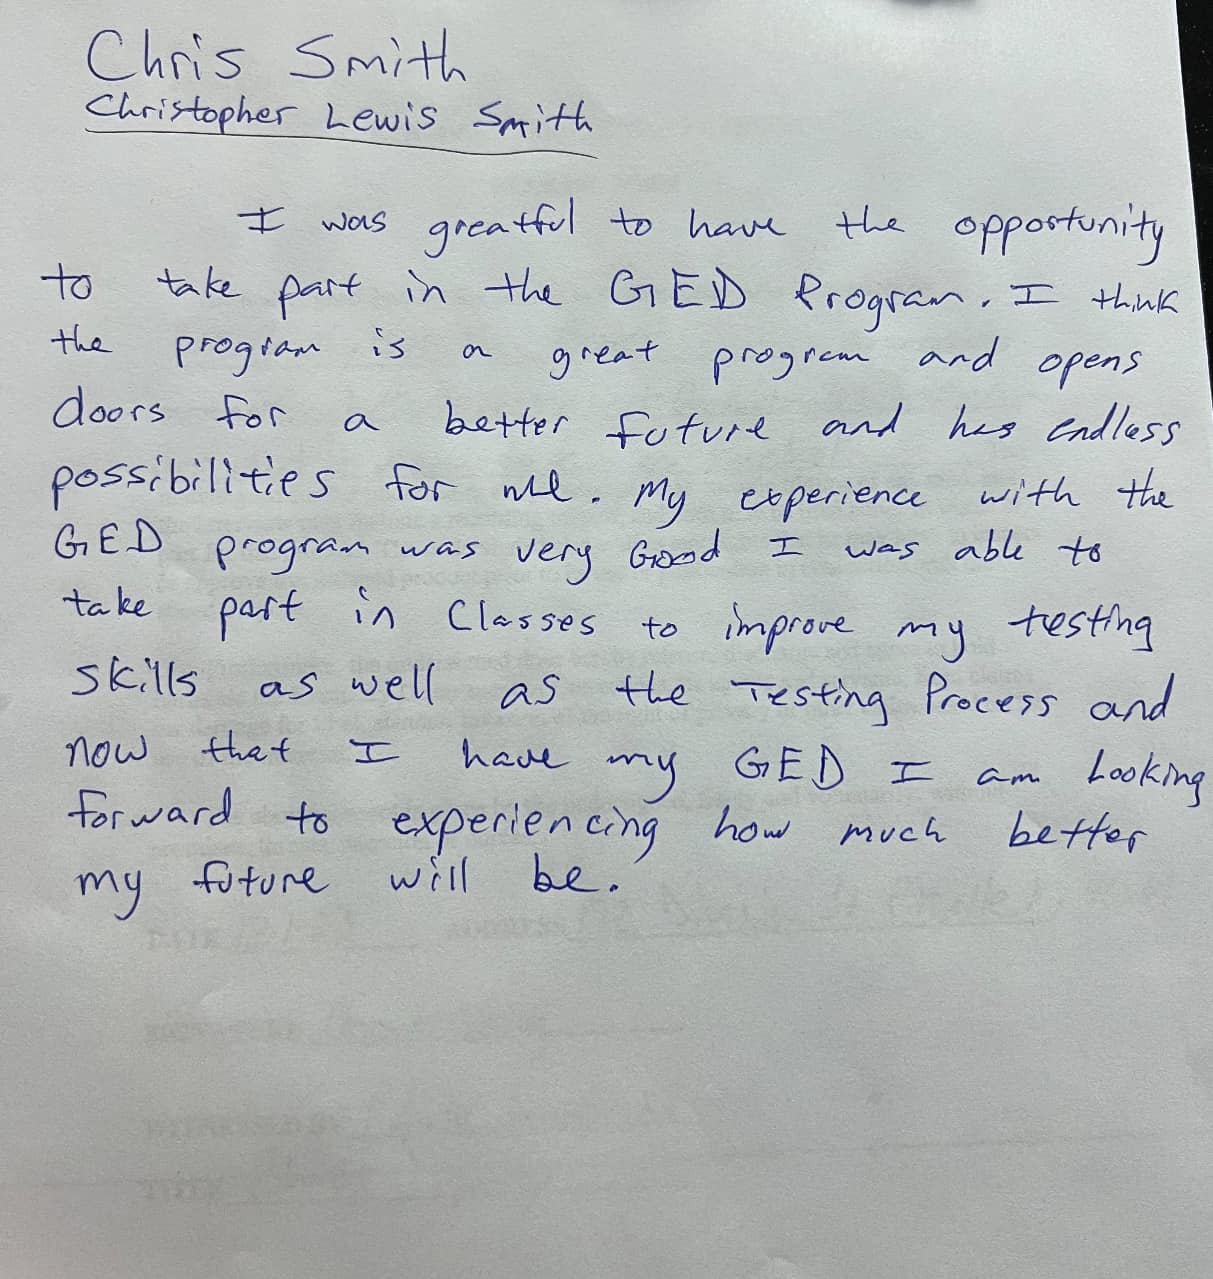 Chris Smith
Christopher Lewis Smith
I was greatful to have the opportunity
to take part in the GED Program. I think
the program is a great program and opens
doors for a better future and has endless
possibilities for me. My experience with the
GED program was very Good I was able to
take part in Classes to improve my testing
skills as well as the Testing Process and
now that I have my GED I am Looking
forward to experiencing how much better
my future will be.
DATE
ADDRESS